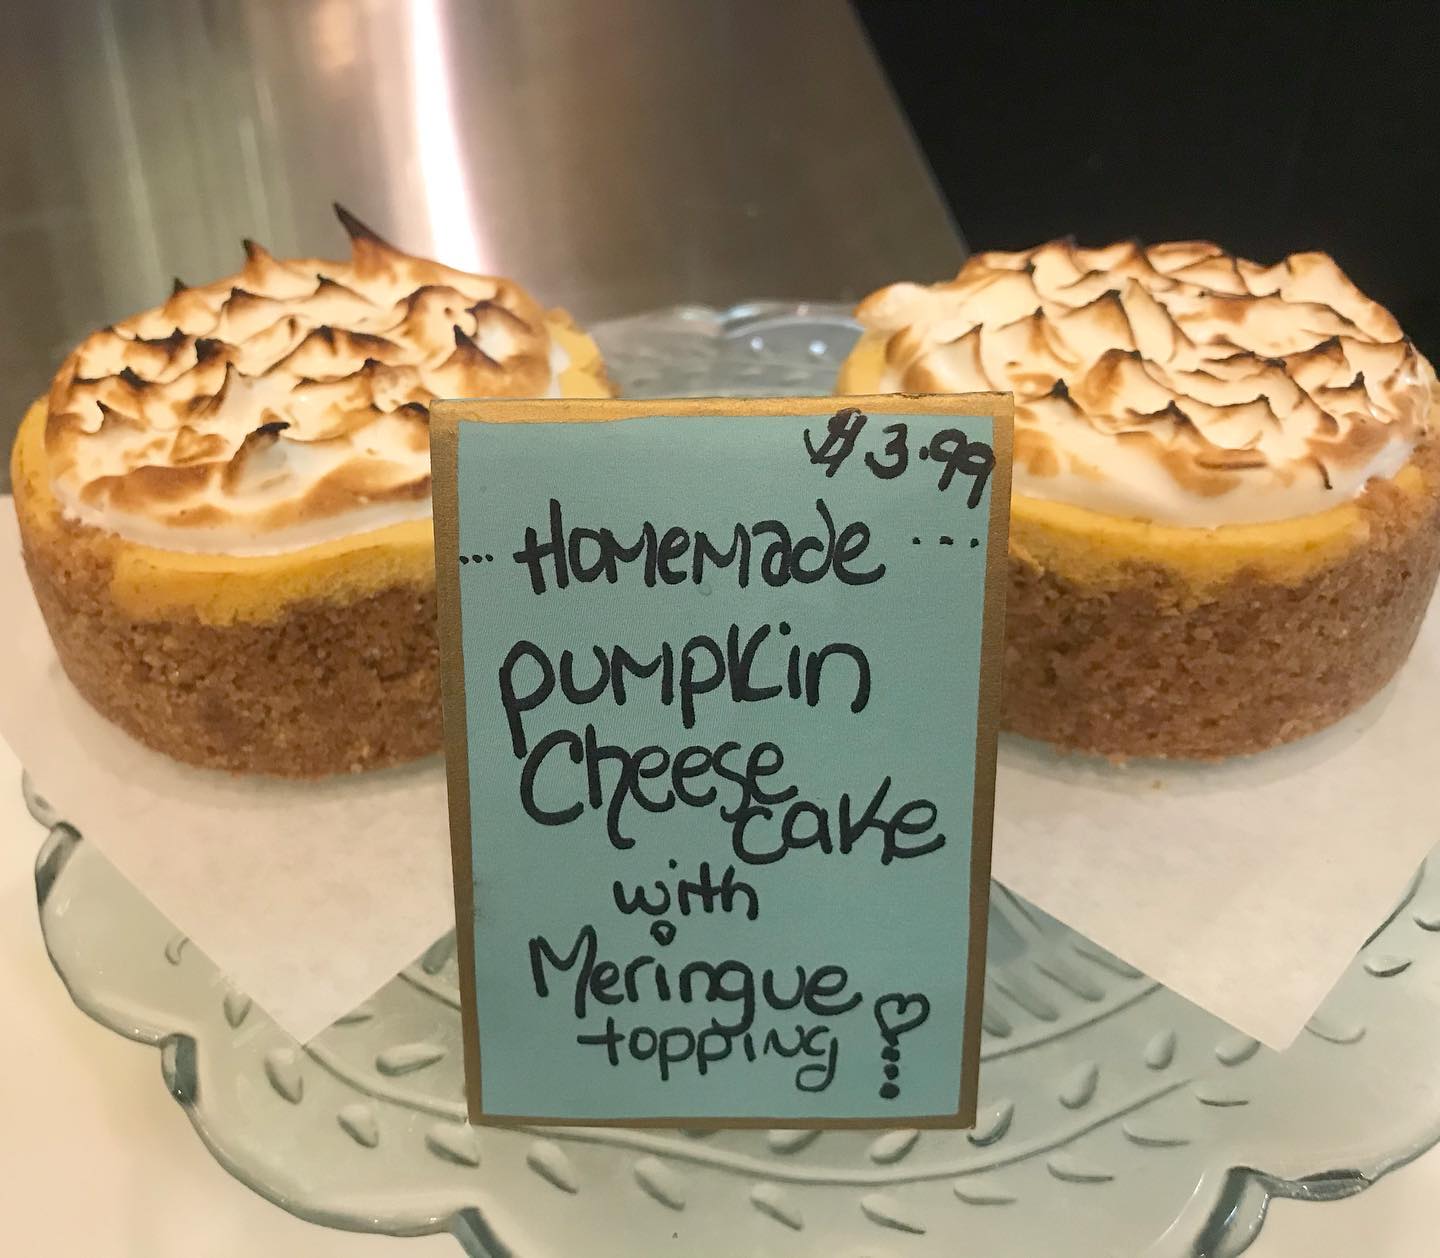 $3.99
... Homemade ...
pumpkin
Cheese
cake
with
Meringue
topping